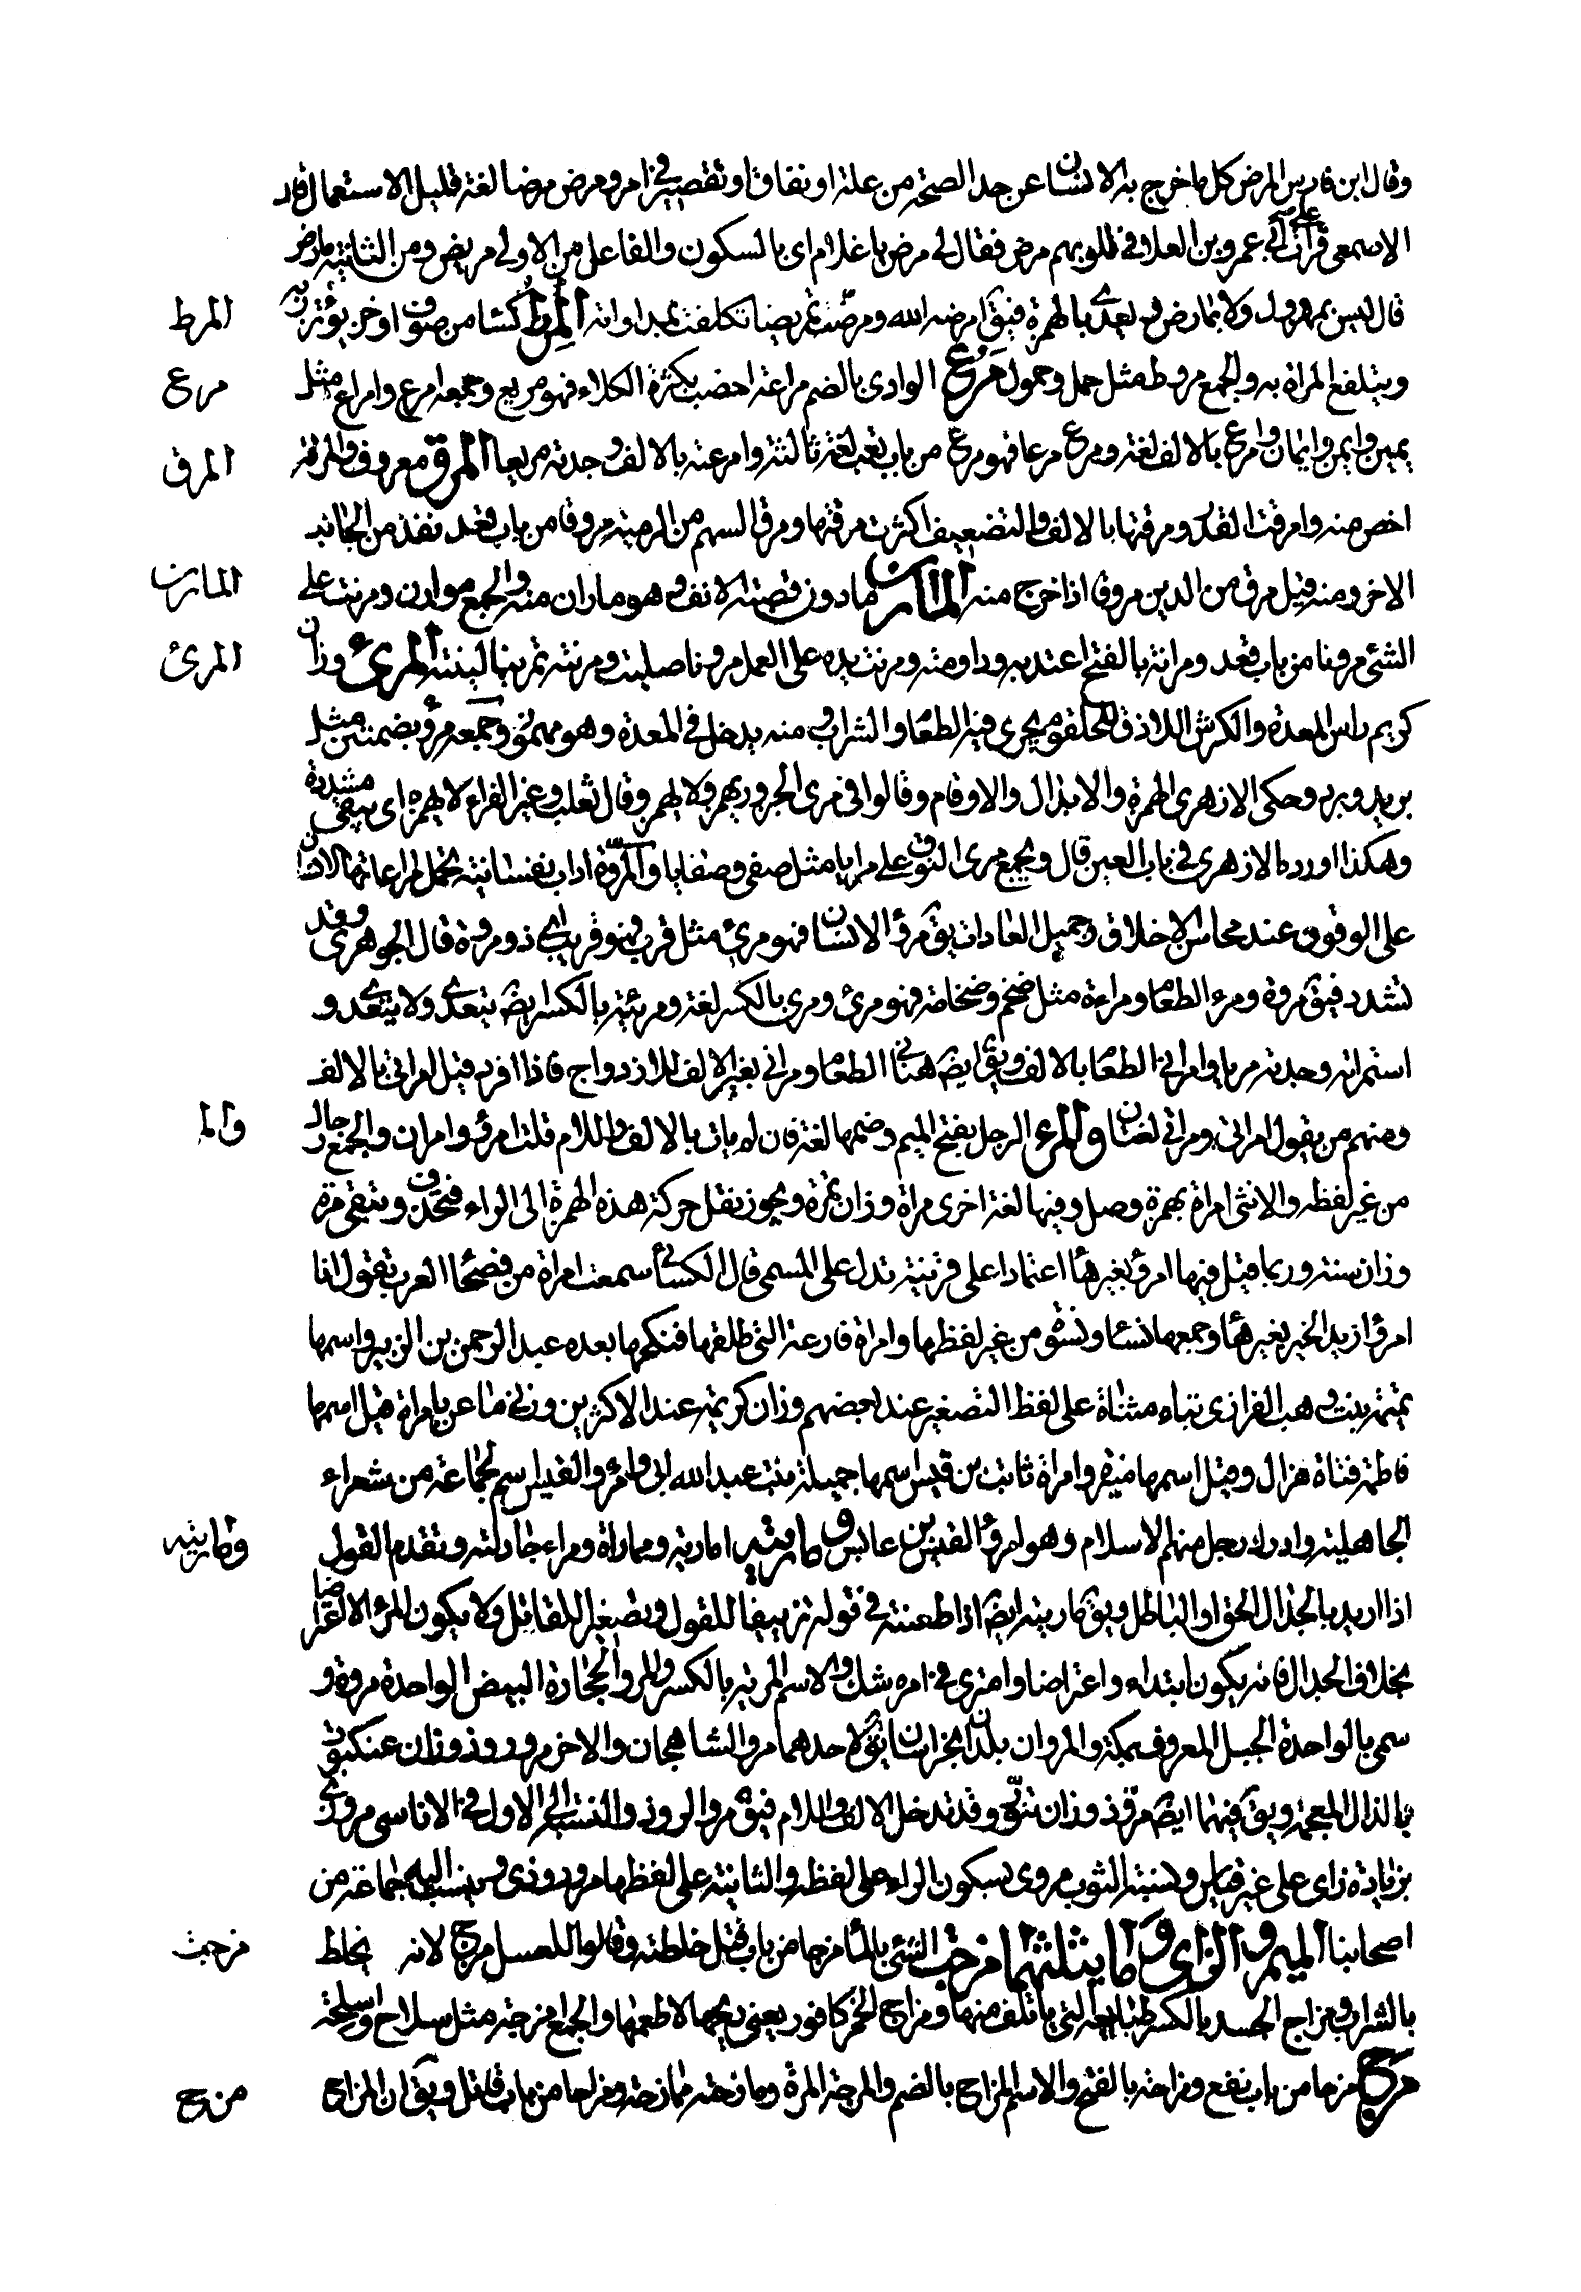 وقال ابن فارس المرض كل ما خرج به الانسان عن حد الصحة من علة او نفاق او تقصير في امر ومرض مرضا لغة قليل الاستعمال قال
الاصمعى قرات على ابى عمرو بن العلا في قلوبهم مرض فقال لى مرض يا غلام اى بالسكون والفاعل من الاولى مريض ومن الثانية مارض
قال ليس بمهزول ولا بمارض ويعدى بالهمزة فيق امرضه الله ومرضته تمريضا تكلفت بمداواته المرط كسا من صوف او خز يؤتزر به
المرط
ويتلفع المراة به والجمع مروط مثل حمل وحمول مرع الوادى بالضم مراعة اخضب بكثرة الكلاء فهو مريع وجمعه امرع وامراع مثل
مرع
يمين وايمن وايمان وامرع بالالف لغة ومرع مرعا فهو مرع من باب تعب لغة ثالثة وامرعته بالالف وجدته مريعا المرق معروف والمرقة
المرق
اخص منه وامرقت القدر ومرقتها بالالف والتضعيف اكثرت مرقتها ومرق السهم من الرمية مروقا من باب قعد نفذ من الجانب
الاخر ومنه قيل مرق من الدين مروقا اذا خرج منه المارن مادون قصبة الانف وهو مالان منه والجمع موارن ومرنت على
المارن
الشئ مرونا من باب قعد ومرانة بالفتح اعتدته وداومته ومرنت يده على العمل مرونا صلبت ومرنته تمرينا لينته المرئ وزان
المرئ
كريم راس المعدة والكرش اللازق بالحلقوم يجرى فيه الطعام والشراب ومنه يدخل في المعدة وهو مهموز وجمعه مرؤ بضمتين مثل
بريد وبرد وحكى الازهرى الهمزة والابدال والادغام وقالوا في مرى الجزور يهمز ولا يهمز وقال ثعلب وغير الفراء لا يهمزه اى يبقى مشددة
وهكذا اورده الازهرى في باب العين قال ويجمع مرى النوق على مرايا مثل صفى وصفايا والمروة اداب نفسانية تحمل مراعاتها الانسان
على الوقوف عند محاسن الاخلاق وجميل العادات يق مرؤ الانسان فهو مرئ مثل قرب فهو قريب اى ذو مروة قال الجوهرى وقد
تشدد فيق مروة ومرء الطعام مراءة مثل ضخم وضخامة فهو مرئ ومرى بالكسر لغة ومرئته بالكسر ايضا يتعدى ولا يتعدى و
استمراته وجدته مريا وامرانى الطعام بالالف ويق ايضا هنانى الطعام ومرانى بغير الالف للازدواج فاذا افرد قيل امرانى بالالف
ومنهم من يقول امرانى ومرانى لغتان والمرء الرجل بفتح الميم وضمها لغة فان لم يات بالالف واللام قلت امرؤ وامران والجمع رجال
والم
من غير لفظه والانثى امراة بهمزة وصل وفيها لغة اخرى مراة وزان تمرة ويجوز نقل حركة هذه الهمزة الى الراء فتحذف وتبقى مرة
وزان سنة وربما قيل فيها امرؤ بغير هاء اعتمادا على قرينة تدل على المسمى قال الكسائى سمعت امراة من فصحاء العرب تقول انا
امرؤ ازيد الخير بغير هاء وجمعها نساء ونسوة من غير لفظها وامراة رفاعة التى طلقها فنكحها بعده عبد الرحمن بن الزبير واسمها
تميمة بنت وهب الفرازى بتاء مثناة على لفظ التصغير عند بعضهم وزان كريمة عند الاكثرين وزنى ماعز بامراة قيل اسمها
فاطمة فتاة هزال وقيل اسمها منيرة وامراة ثابت بن قيس اسمها جميلة بنت عبد الله ابى وامرؤ القيس اسم لجماعة من شعراء
الجاهلية وادرك رجل منهم الاسلام وهو امرؤ القيس بن عابس وماريته اماريه ومماراة ومراء جادلته وتقدم القول
وماريته
اذا اريد بالجدال الحق او الباطل ويق ماريته ايضا اذا طعنت في قوله تزييفا للقول وتصغيرا للقائل ولا يكون المراء الا اعتراضا
بخلاف الجدال فانه يكون ابتداء واعتراضا وامترى في امره شك والاسم المرية بالكسر والمرو الحجارة البيض الواحدة مروة و
سمى بالواحدة الجبل المعروف بمكة والمروان بلدان بخراسان يق لاحدهما مرو الشاهجان والاخر مروروذ وزان عنكبوت
بالذال المعجمة ويق فيها ايضا مروذ وزان تنور وقد تدخل الالف واللام فيق مرو الروذ والنسبة الى الاول في الاناسى مروزى
بزيادة زاى على غير قياس ونسبة الثوب مروى بسكون الراء على لفظه والثانية على لفظها مروروذى وينسب اليهما جماعة من
اصحابنا الميم والزاى وما يثلثهما مزجت الشئ بالماء مزجا من باب قتل خلطته وقالوا للعسل مزج لانه يخلط
مزجت
بالشراب ومزاج الجسد بالكسر طبايعه التى ياتلف منها ومزاج الخمر كافور يعنى ريحها لا طعمها والجمع امزجة مثل سلاح واسلحة
مزح مزحا من باب نفع ومزاحة بالفتح والاسم المزاح بالضم والمزحة المرة ومازحته ممازحة ومزاحا من باب قاتل ويق ان المزاح
مزح